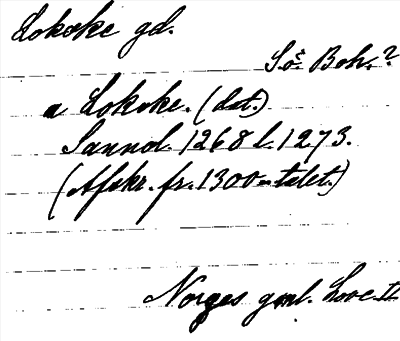 Lokske gd.
Sös Boh.?
a Lokske. (dat.)
Sannol. 1268 l. 1273.
(Afskr. fr. 1300-talet.)
Norges gml. Love II